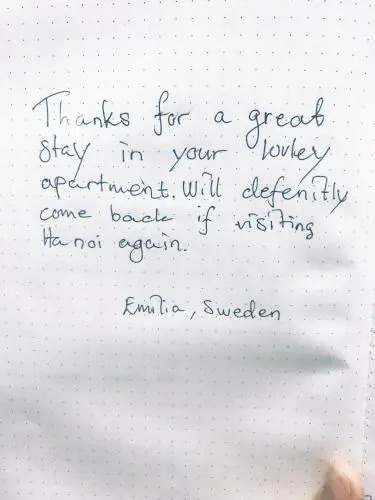 Thanks for a great
stay in your lovley
apartment. Will defenitly
come back if visiting
Hanoi again.
Emilia, Sweden